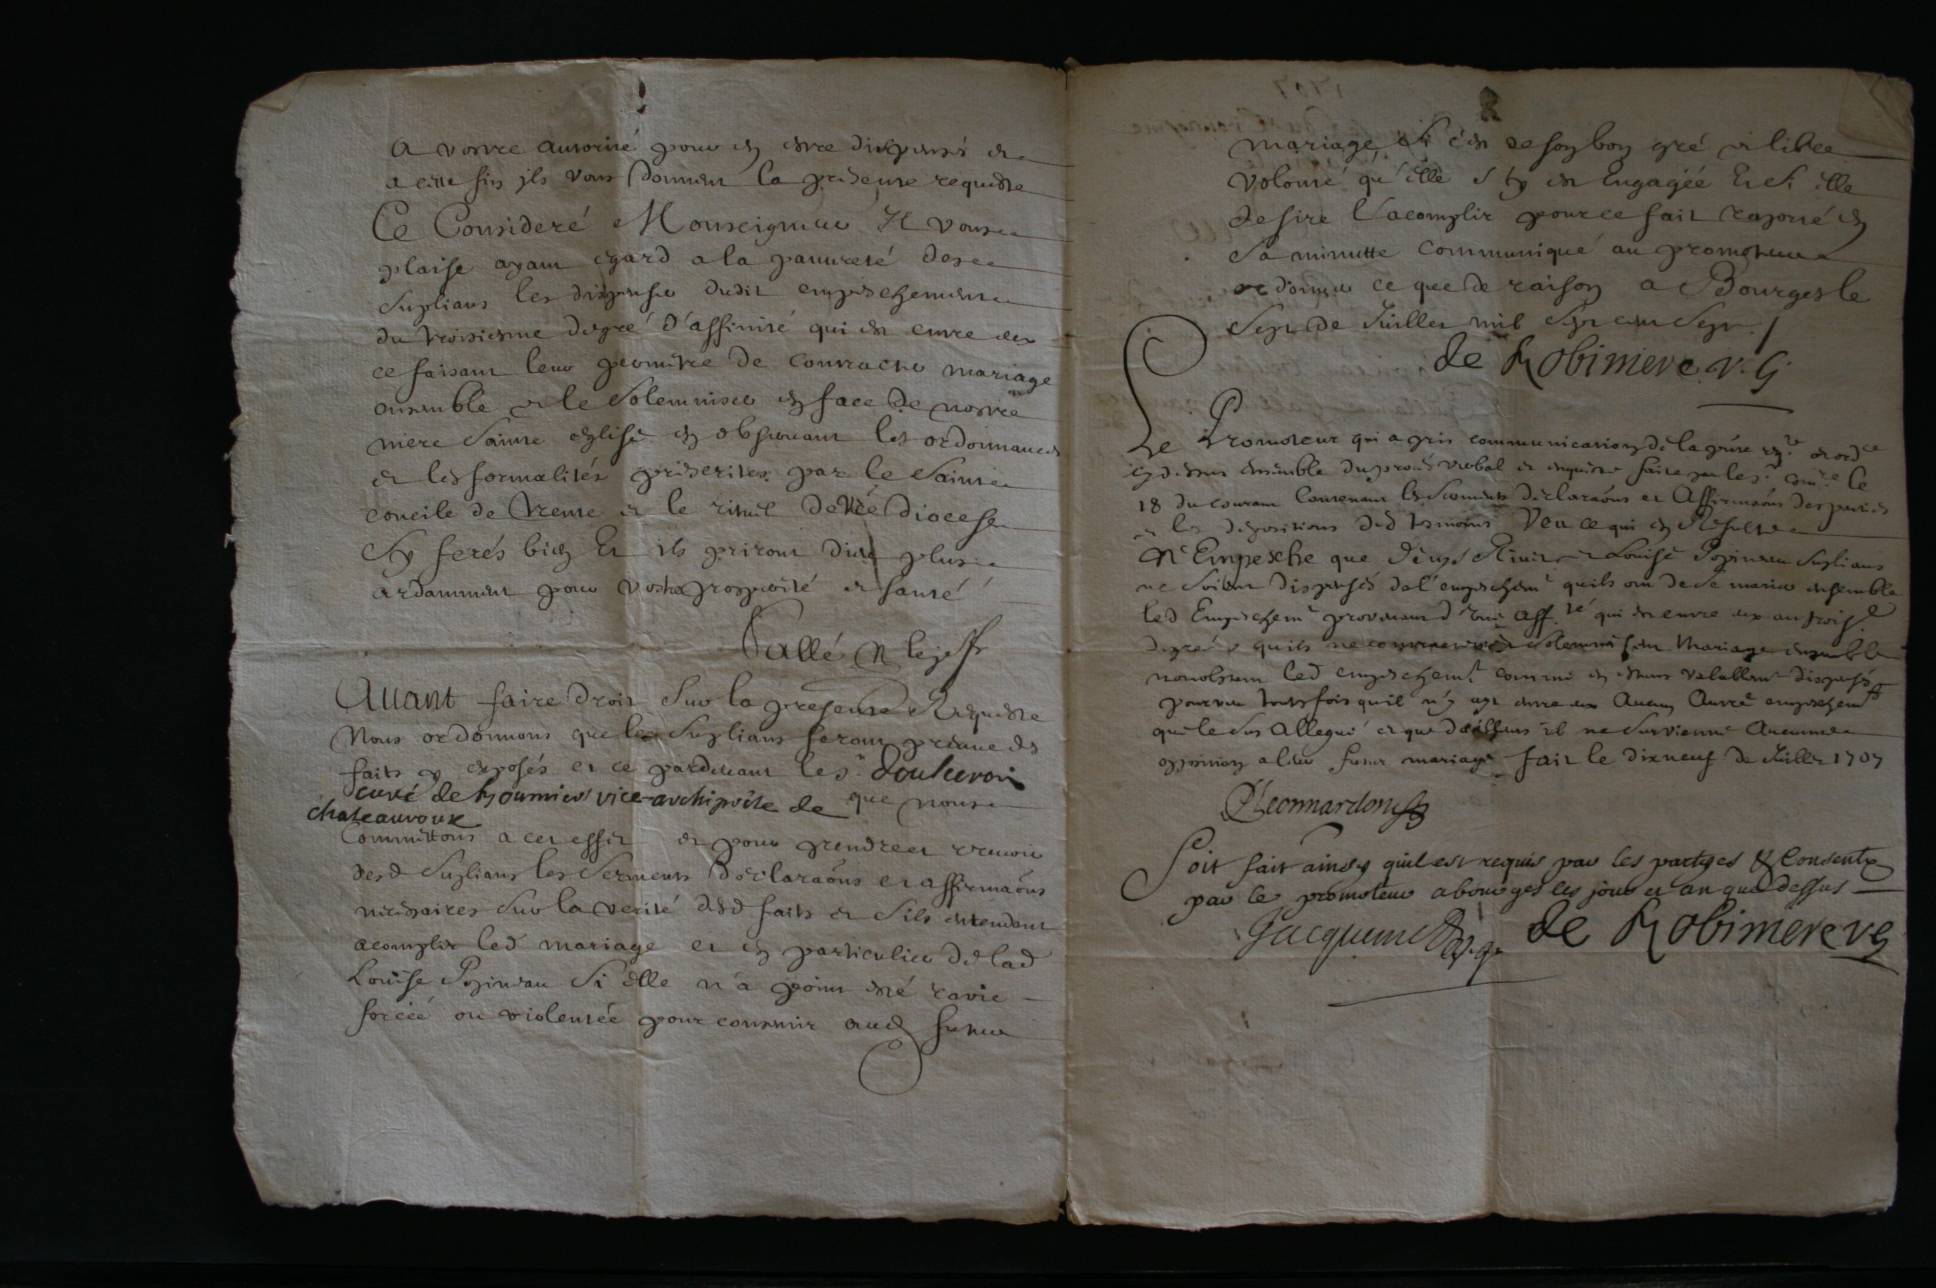 a vostre autorité pour en estre dispensés et
a cette fin ils vous donnent la presente requeste
Ce Consideré Monseigneur Il vous
plaise ayant egard a la pauvreté des
suplians les dispenser dudit empeschement
du troisiesme degré d'affinité qui est entre eux
ce faisant leur permettre de contracter mariage
ensemble et le solemniser en face de nostre
mere sainte eglise en observant les ordonnances
et les formalités prescrites par le saint
concile de trente et le rituel de vre diocese
Sy ferés bien Et ils priront dieu plus
ardamment pour vostre prosperité et santé
Avant faire droit sur la presente Requeste
Nous ordonnons que les suplians feront preuve des
faits y exposés et ce pardevant le sr
curé de vice-archiprêtre de que nous
chateauroux
Commettons a cet effet et pour prendre et recevoir
desd suplians les serments déclaraõns et affirmaõns
necessaires sur la verité desd faits et s'ils entendent
acomplir led mariage et en particulier de lad
Louise Popineau si elle n'a point esté ravie
forcée ou violentée pour consentir aud futur
mariage, si c'est de son bon gré et libre
volonté qu'elle s'y est Engagée Et si elle
desire l'acomplir pour ce fait raporté en
sa minutte communiqué au promoteur
ordonner ce que de raison a Bourges le
Sept de Juillet mil sept cent sept
de Robiniere v.g
Le Promoteur qui a pris communication de la pnte reqte et ordce
cy dessus ensemble du procés verbal et enqueste faite par le sr comre le
18 du courant Contenant les serments déclaraõns et Affirmaõns des parties
et les depositions desd tesmoins Veu ce qui en Resulte
N'Empesche que et Louise Popineau suplians
ne soient dispensés de l'empeschemt quils ont de se marier ensemble
led Empeschemt provenant d'une affté qui est entre eux au trois.e
degré et quils ne contractent et solemnisent Mariage ensemble
nonobstant led empeschemt comme en estans valablemt dispensés
pourveu toutesfois quil n'y ayt entre eux Aucun Autre empeschemt
que le sus Allegué et que d'ailleurs il ne survienne Aucune
opposition a leur futur mariage fait le dix neuf de Juillet 1707
Leonnardon
Soit fait ainsy quil est requis par les partyes & Consenty
par le promoteur a bourges les jour et an que dessus
Jacquemet v.g. de Robiniere vg